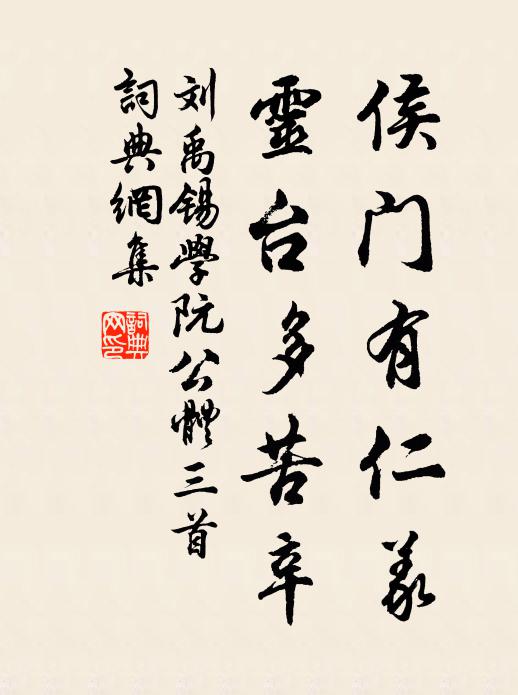 侯门有仁義
靈台多苦辛
刘禹锡學阮公體三首
詞典網集
詞典網印